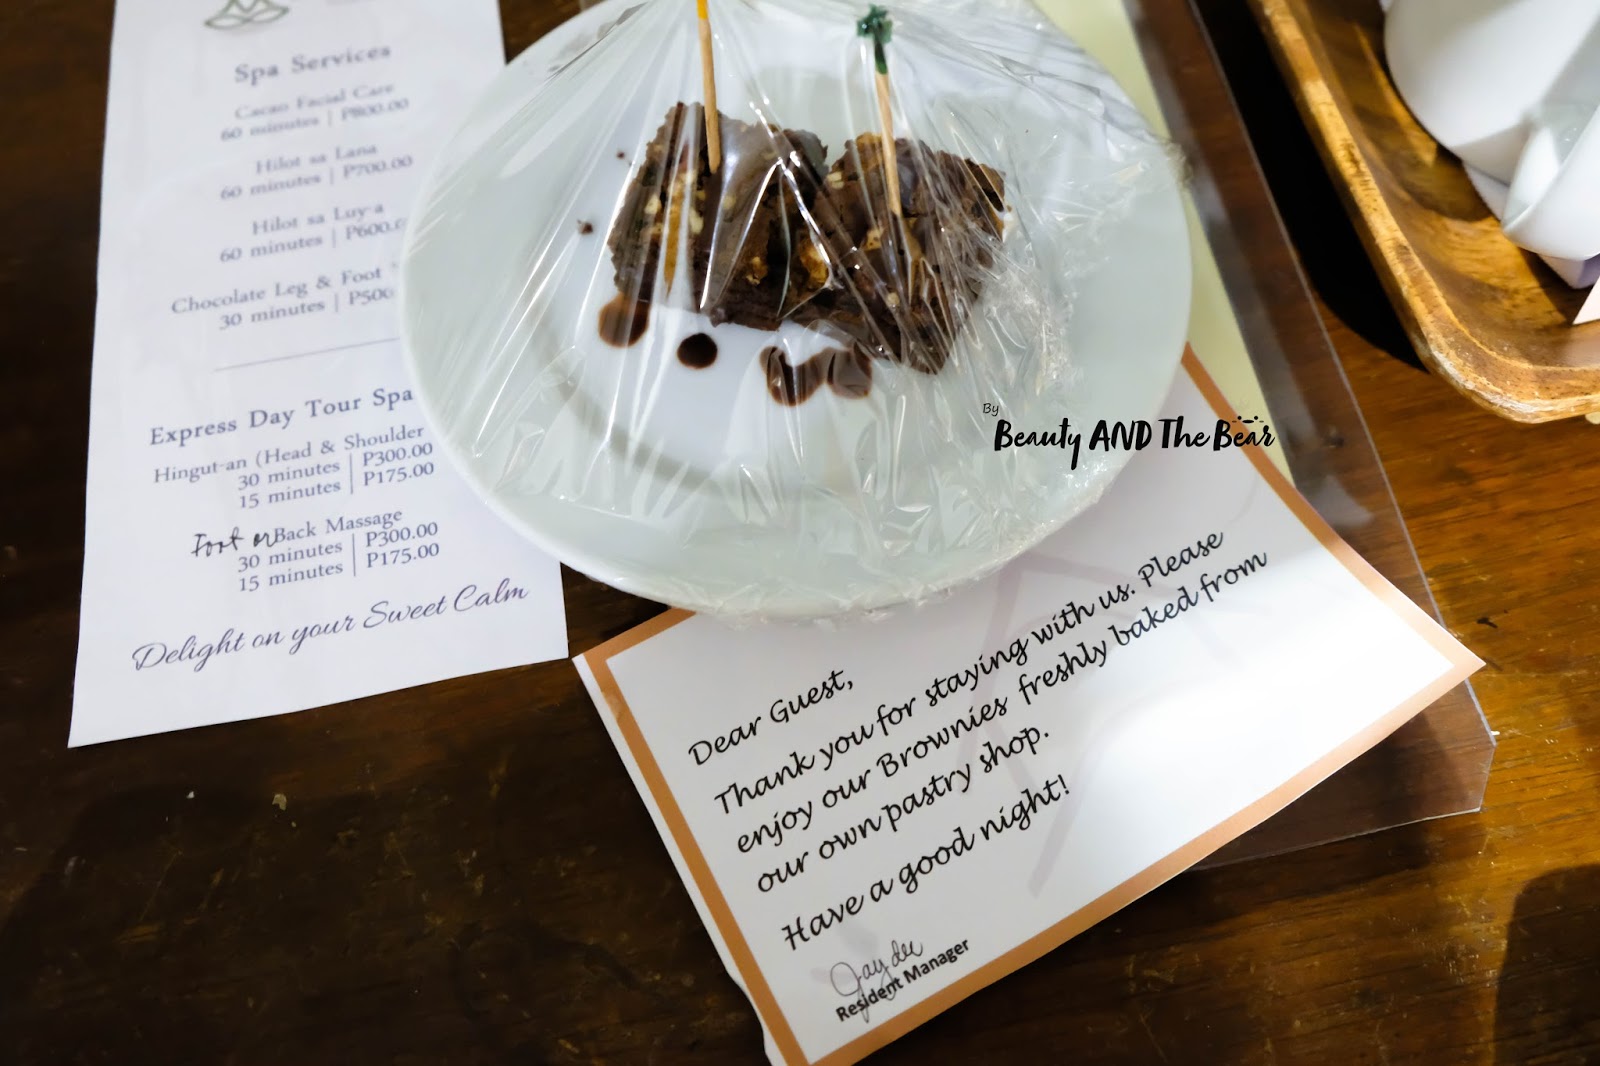 Spa Services
Cacao Facial Care
60 minutes | P800.00
Hilot sa Lana
60 minutes | P700.00
Hilot sa Luy-a
60 minutes | P600.
Chocolate Leg & Foot
30 minutes | P500
Express Day Tour Spa
Hingut-an (Head & Shoulder
30 minutes | P300.00
15 minutes | P175.00
Foot or Back Massage
30 minutes | P300.00
15 minutes | P175.00
Delight on your Sweet Calm
By
Beauty AND The Bear
Dear Guest,
Thank you for staying with us. Please
enjoy our Brownies freshly baked from
our own pastry shop.
Have a good night!
Resident Manager